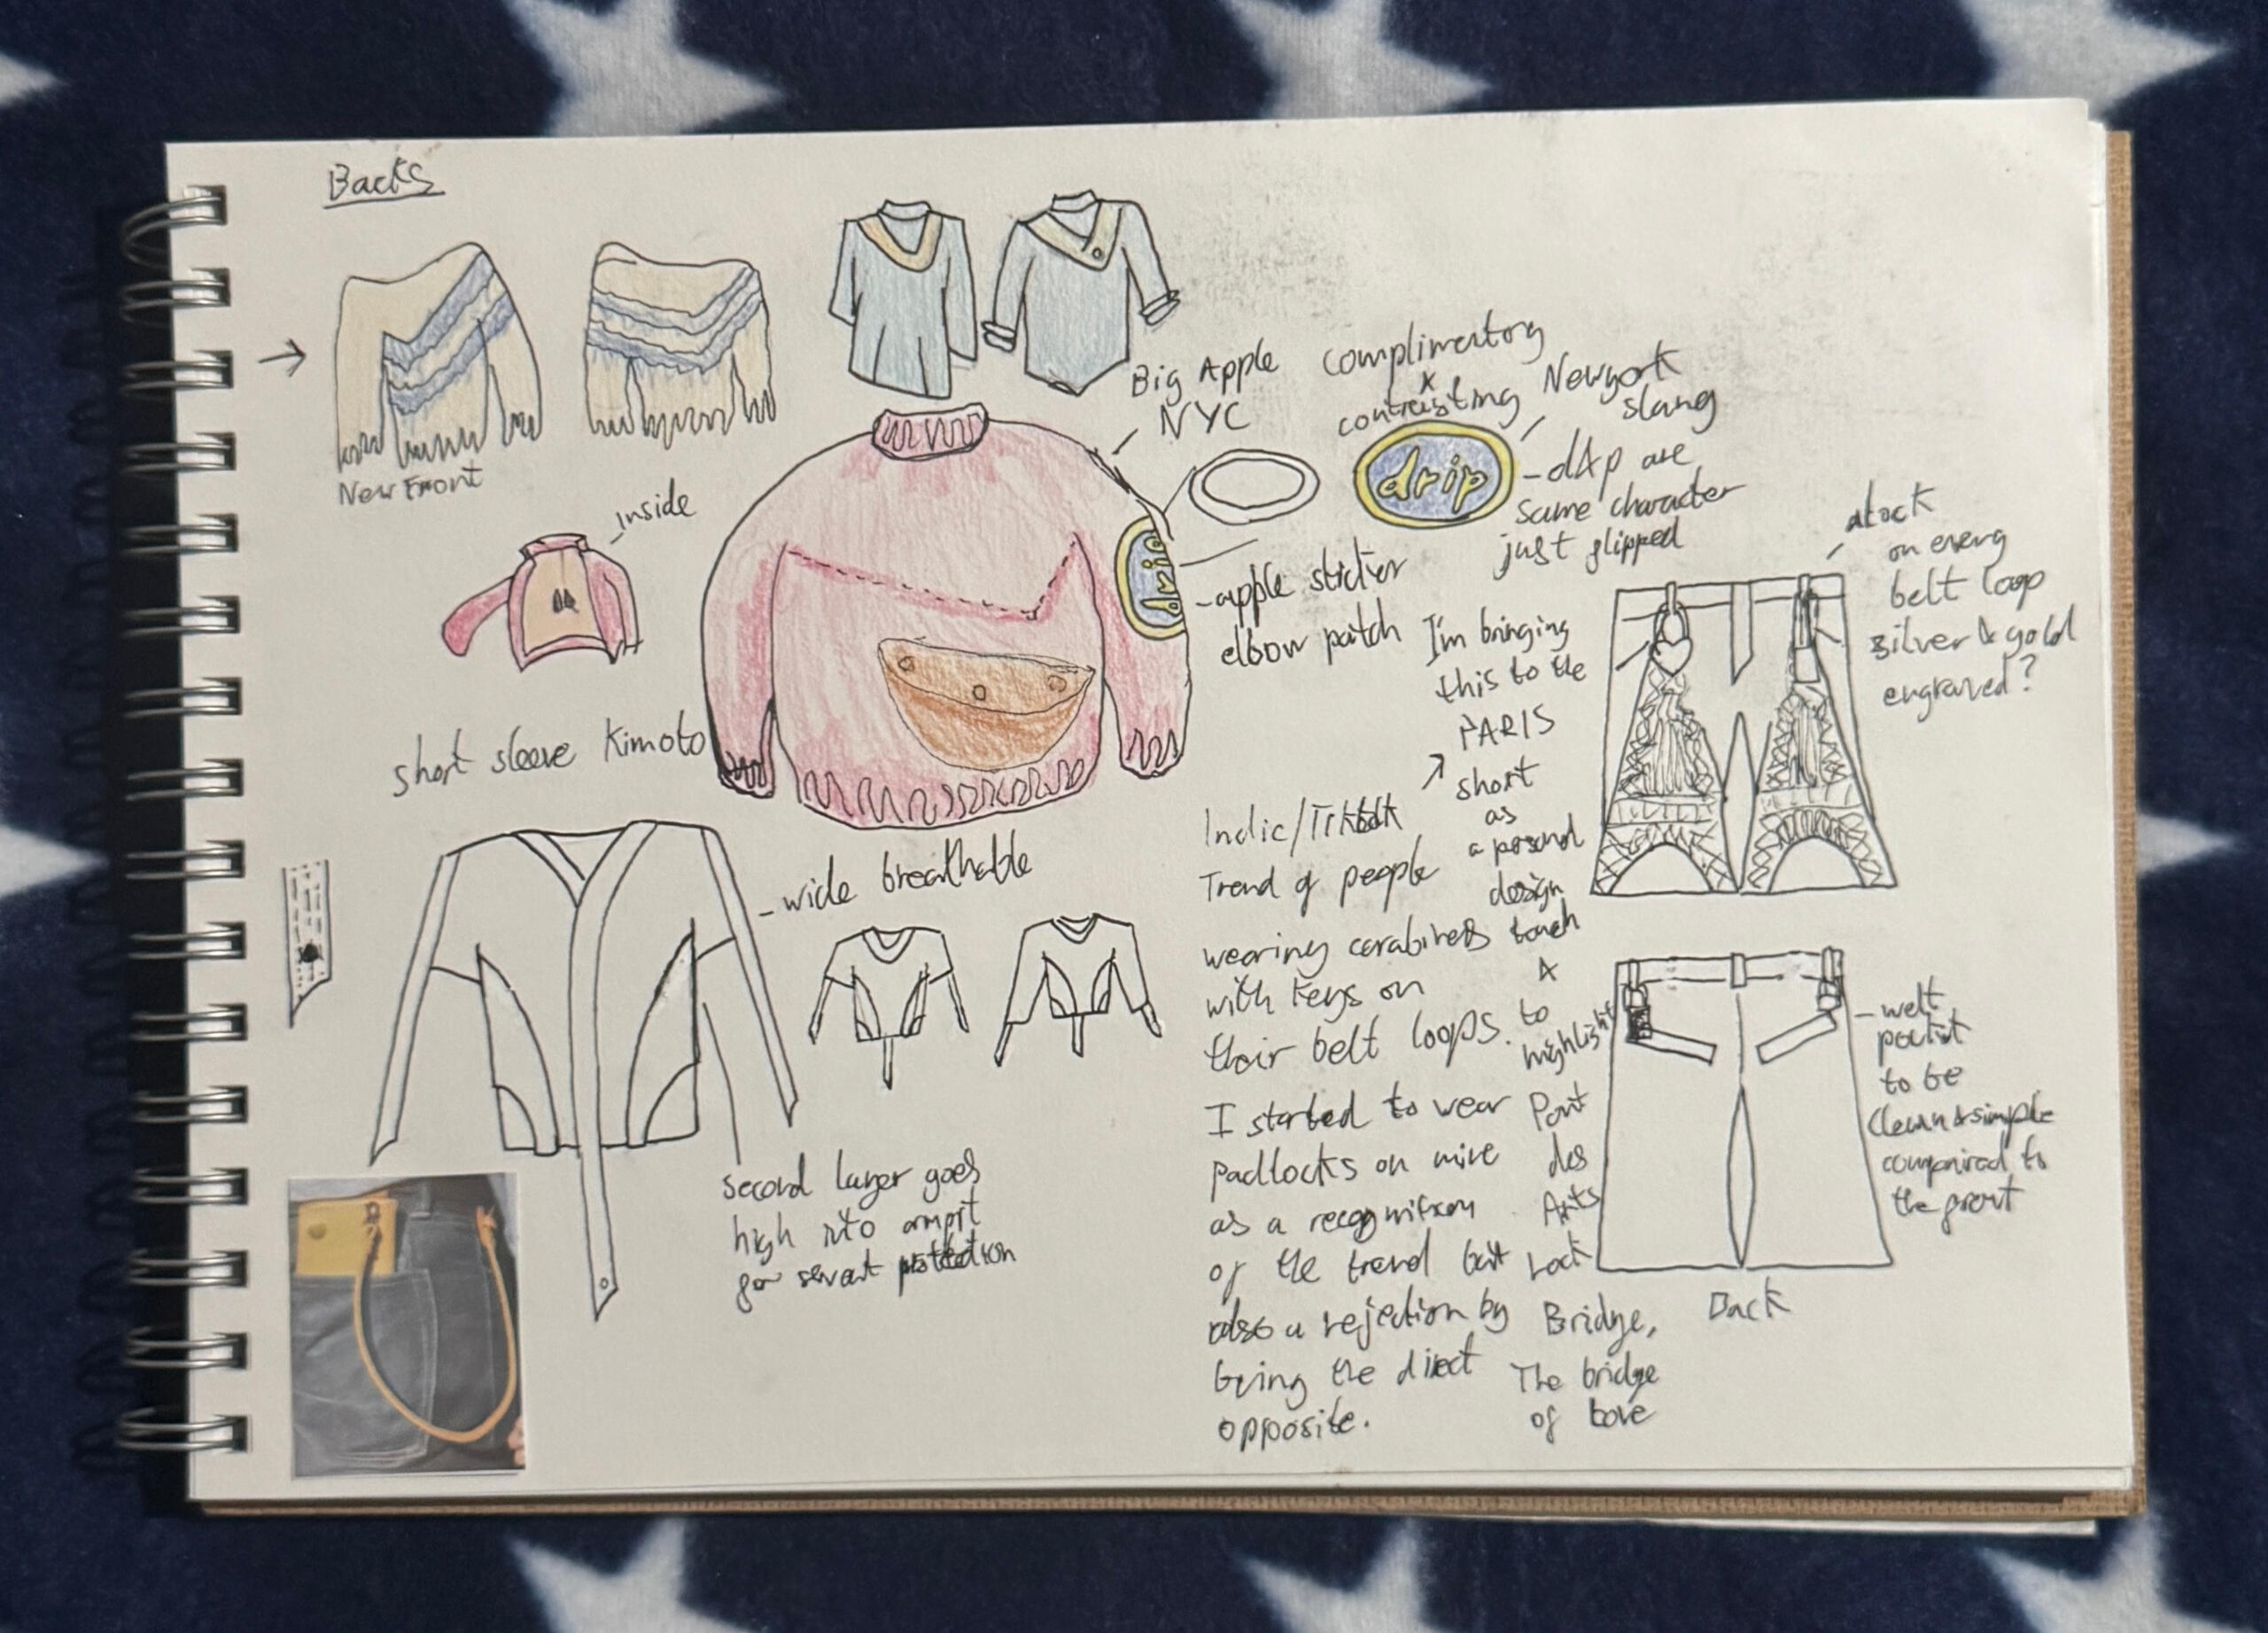 Backs
New Front
inside
Big Apple
NYC
complimentory
x
contrasting
Newyork
slang
drip
-d&p are
same character
just flipped
drip
-apple sticker
elbow patch
short sleeve Kimoto
-wide breathable
second layer goes
high into armpit
for sweat protection
I'm bringing
this to the
PARIS
short
as
a personal
design
touch
&
to
highlight
Pont
des
Arts
Lock
Bridge,
The bridge
of love
Indie/Tiktok
Trend of people
wearing carabiners
with keys on
their belt loops.
I started to wear
Padlocks on mine
as a recognition
of the trend but
also a rejection by
being the direct
opposite.
a lock
on every
belt loop
silver & gold
engraved?
-welt
pocket
to be
clean & simple
compaired to
the front
Back